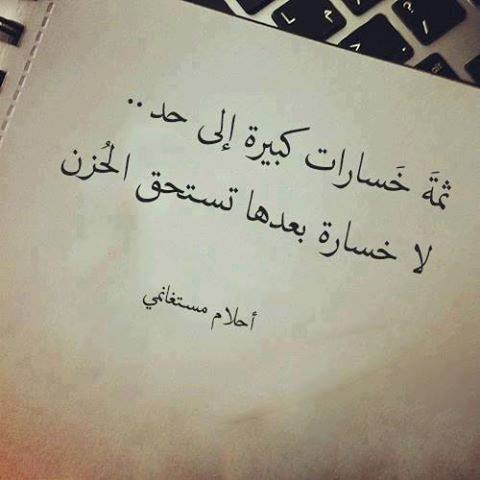 ثمَةَ خَسارات كبيرة إلى حد ..
لا خسارة بعدها تستحق الحُزن
أحلام مستغانمي